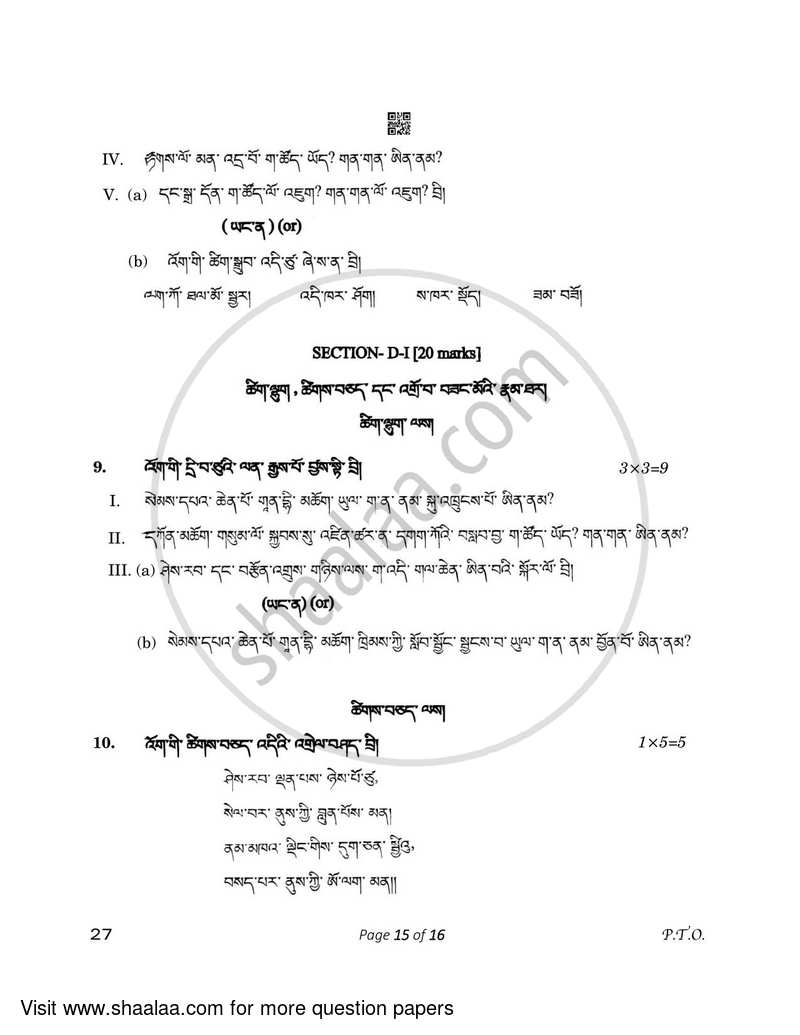 IV. རྟགས་ལོ་ མན་ འདྲ་བོ་ ག་ཚོད་ ཡོད? གན་གན་ ཨིན་ནམ?
V. (a) དང་སྒྲ་ དོན་ ག་ཚོད་ལོ་ འཇུག? གན་གན་ལོ་ འཇུག? བྲི།
( ཡང་ན ) (or)
(b) འོག་གི་ ཚིག་སྒྲུབ་ འདི་ཙུ་ ཞེ་ས་ན་ བྲི།
ལག་ཀོ་ ཐལ་མོ་ སྦྱར། འདི་ཁར་ ཤོག། ས་ཁར་ སྡོད། ཟམ་ བཟོ།
SECTION- D-I [20 marks]
ཚིག་ལྷུག , ཚིགས་བཅད་ དང་ འགྲོ་བ་ བཟང་མོའི་ རྣམ་ཐར།
ཚིག་ལྷུག་ ལས།
9. འོག་གི་ དྲི་བ་ཙུའི་ ལན་ རྒྱས་པོ་ བྱས་སྟི་ བྲི། 3×3=9
I. སེམས་དཔའ་ ཆེན་པོ་ གཱུན་དྷི་ མཆོག་ ཡུལ་ ག་ན་ ནམ་ སྐུ་འཁྲུངས་པོ་ ཨིན་ནམ?
II. དཀོན་མཆོག་ གསུམ་ལོ་ སྐྱབས་སུ་ འཛིན་ཚར་ན་ དགག་ཀོའི་ བསླབ་བྱ་ ག་ཚོད་ ཡོད? གན་གན་ ཨིན་ནམ?
III. (a) ཤེས་རབ་ དང་ བརྩོན་འགྲུས་ གཉིས་ལས་ ག་འདི་ གལ་ཆེན་ ཨིན་བའི་ སྐོར་ལོ་ བྲི།
(ཡང་ན) (or)
(b) སེམས་དཔའ་ ཆེན་པོ་ གཱུན་དྷི་ མཆོག་ ཁྲིམས་ཀྱི་ སློབ་སྦྱོང་ སྦྱངས་བ་ ཡུལ་ ག་ན་ ནམ་ བྱོན་བོ་ ཨིན་ནམ?
ཚིགས་བཅད་ ལས།
10. འོག་གི་ ཚིགས་བཅད་ འདིའི་ འགྲེལ་བཤད་ བྲི། 1×5=5
ཤེས་རབ་ ལྡན་པས་ ཉེས་པོ་ཙུ,
སེལ་བར་ ནུས་ཀྱི་ བླུན་པོས་ མན།
ནམ་མཁའ་ ལྡིང་གིས་ དུག་ཅན་ སྦྱིའུ,
བསད་པར་ ནུས་ཀྱི་ ཨོ་ལག་ མན།།
27 Page 15 of 16 P.T.O.
shaalaa.com
Visit www.shaalaa.com for more question papers